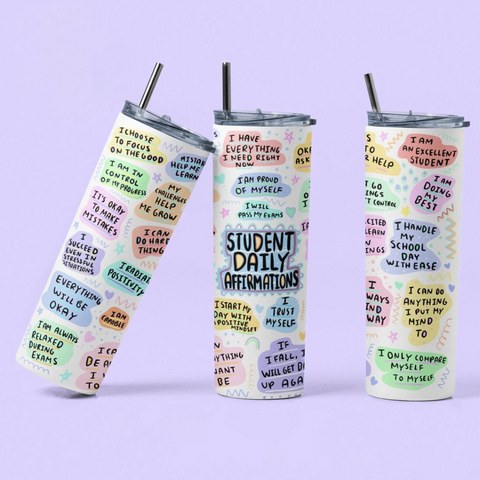 I CHOOSE
TO FOCUS
ON THE GOOD
MISTAK
HELP ME
LEARN
I AM IN
CONTROL
OF MY PROGRESS
MY
CHALLENGES
HELP
ME GROW
IT'S OKAY
TO MAKE
MISTAKES
I CAN
DO HARD
THING
I
SUCCEED
EVEN IN
STRESSFUL
SITUATIONS
I RADIA
POSITIVIT
EVERYTHING
WILL BE
OKAY
I AM
CAPABLE
I AM ALWAYS
RELAXED
DURING
EXAMS
I CA
BE A
I W
TO
I HAVE
EVERYTHING
I NEED RIGHT
NOW
OK
ASK
I AM PROUD
OF MYSELF
I WILL
PASS MY EXAMS
STUDENT
DAILY
AFFIRMATIONS
I START MY
DAY WITH
A POSITIVE
MINDSET
I
TRUST
MYSELF
N
YTHING
ANT
BE
IF
I FALL, I
WILL GET B
UP AGA
I AM
AN EXCELLENT
STUDENT
S
TO
R HELP
I AM
DOING
MY
BEST
T GO
INGS
T CONTROL
CITED
LEARN
W
NGS
I HANDLE
MY
SCHOOL
DAY
WITH EASE
I
WAYS
IND
WAY
I CAN DO
ANYTHING
I PUT MY
MIND
TO
I ONLY COMPARE
MYSELF
TO MYSELF